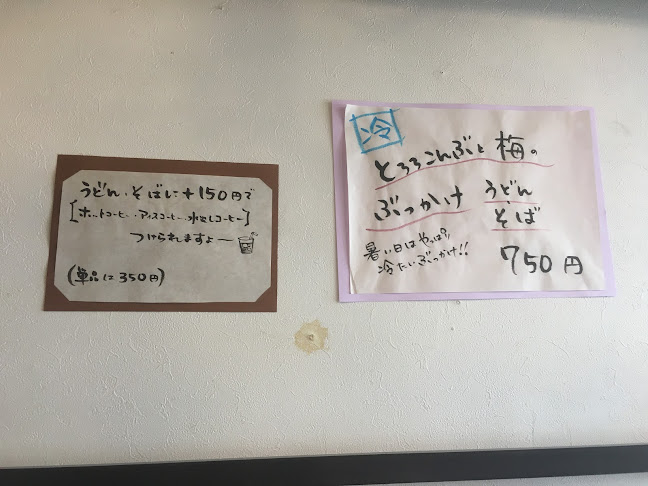 うどん・そばに+150円で
[ホットコーヒー・アイスコーヒー・水出しコーヒー]
つけられますよー
(単品は350円)
冷
とろろこんぶと梅の
ぶっかけ うどん
そば
暑い日はやっぱ
冷たいぶっかけ!!
750円